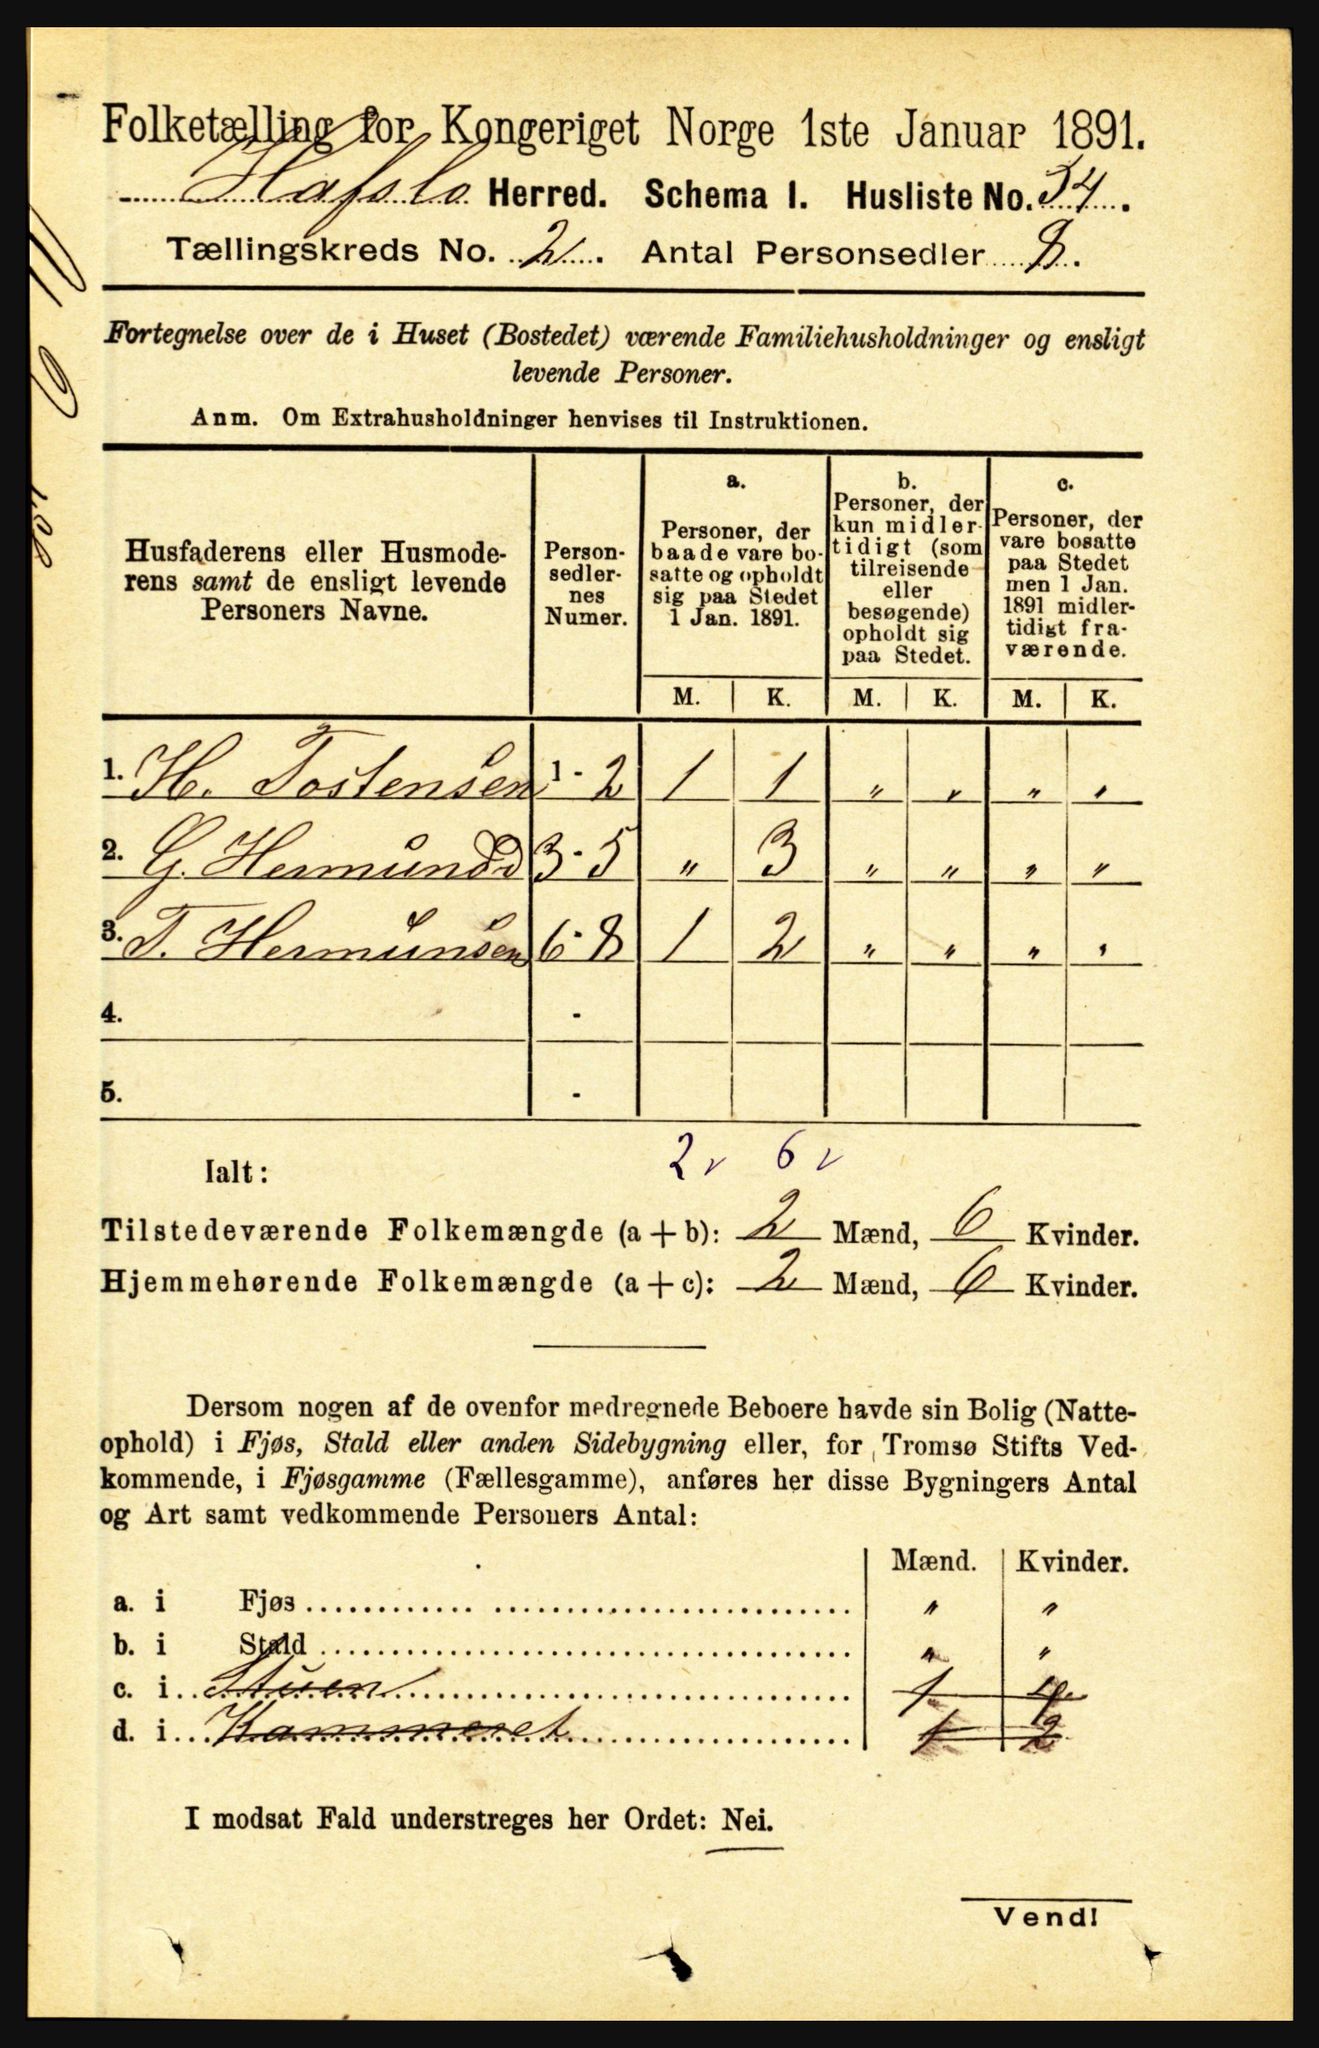 Folketælling for Kongeriget Norge 1ste Januar 1891.
Hafslo Herred. Schema I. Husliste No. 34.
Tællingskreds No. 2. Antal Personsedler 8.
Fortegnelse over de i Huset (Bostedet) værende Familiehusholdninger og ensligt
levende Personer.
Anm. Om Extrahusholdninger henvises til Instruktionen.
Husfaderens eller Husmode-
rens samt de ensligt levende
Personers Navne.
Person-
sedler-
nes
Numer.
a.
Personer, der
baade vare bo-
satte og opholdt
sig paa Stedet
1 Jan. 1891.
b.
Personer, der
kun midler-
tidigt (som
tilreisende
eller
besøgende)
opholdt sig
paa Stedet.
c.
Personer, der
vare bosatte
paa Stedet
men 1 Jan.
1891 midler-
tidigt fra-
værende.
M. K. M. K. M. K.
1. H. Tostensen 1 - 2 1 1 " " " "
2. G. Hermundsd 3 - 5 " 3 " " " "
3. T. Hermunsen 6 - 8 1 2 " " " "
4. -
5. -
Ialt: 2 6
Tilstedeværende Folkemængde (a + b): 2 Mænd, 6 Kvinder.
Hjemmehørende Folkemængde (a + c): 2 Mænd, 6 Kvinder.
Dersom nogen af de ovenfor medregnede Beboere havde sin Bolig (Natte-
ophold) i Fjøs, Stald eller anden Sidebygning eller, for Tromsø Stifts Ved-
kommende, i Fjøsgamme (Fællesgamme), anføres her disse Bygningers Antal
og Art samt vedkommende Personers Antal:
Mænd. Kvinder.
a. i Fjøs " "
b. i Stald " "
c. i Stuen 1 4
d. i Kammeret 1 2
I modsat Fald understreges her Ordet: Nei.
Vend!